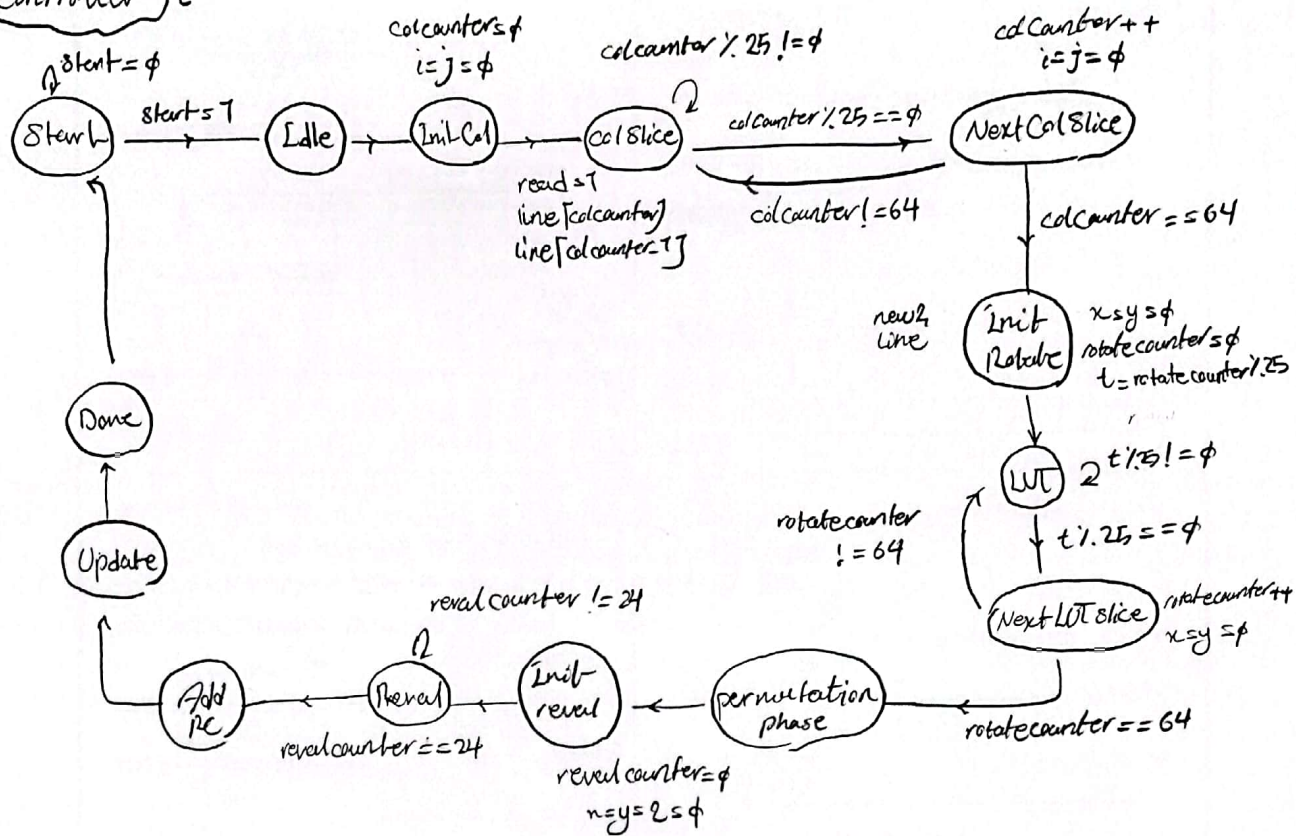 Controller
start = ϕ
Start
start = 1
Idle
colcounter = ϕ
i = j = ϕ
Init Col
colcounter % 25 != ϕ
colSlice
read = 1
line[colcounter]
line[colcounter-1]
colcounter % 25 == ϕ
colcounter != 64
colcounter++
i = j = ϕ
NextColSlice
colcounter == 64
new2
line
Init
Rotate
x = y = ϕ
rotatecounter = ϕ
t = rotatecounter % 25
LUT
t % 25 != ϕ
t % 25 == ϕ
rotatecounter
!= 64
Next LUT slice
rotatecounter++
x = y = ϕ
rotatecounter == 64
permutation
phase
Init
reval
revalcounter = ϕ
x = y = z = ϕ
revalcounter != 24
Reval
revalcounter == 24
Add
RC
Update
Done